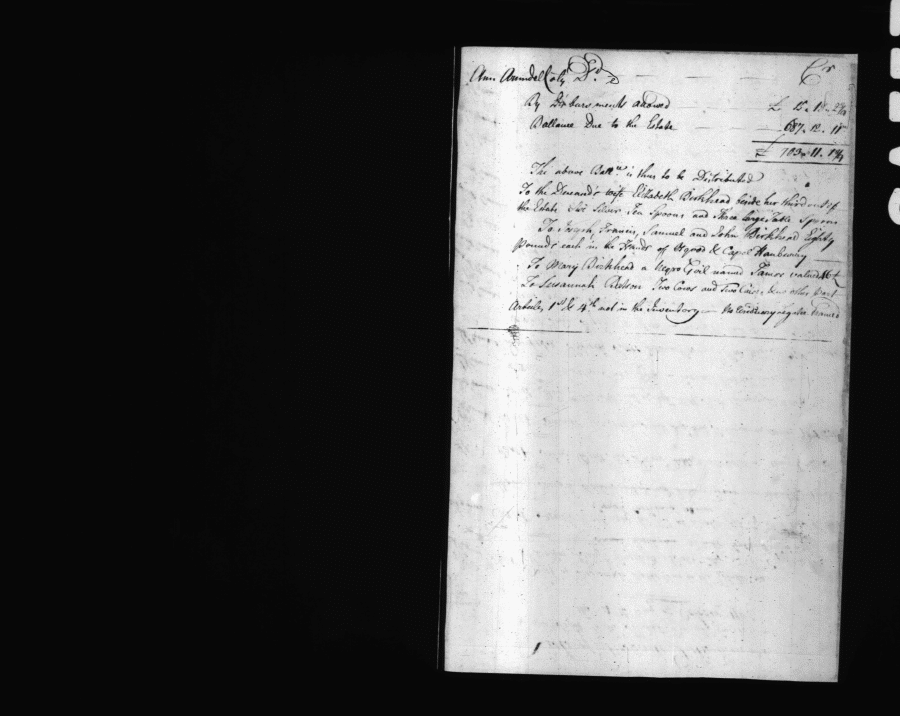 Ann Arundel Coty Sd. Cr
By Disbursments allowed £ 15.18.
Ballance Due to the Estate 687.12.11
£ 703.11.
The above Ballce is thus to be Distributed
To the Deceased's wife Elizabeth Birkhead beside her third out of
the Estate Six Silver Tea Spoons and Three large Table Spoons
To Francis, Samuel and John Birkhead Eighty
Pounds each in the Hands of & Capel Hanbury
To Mary Birkhead a Negro Girl named valued
To Susannah Two Cows and Two other part
Articles, 1st & 4th not in the Inventory